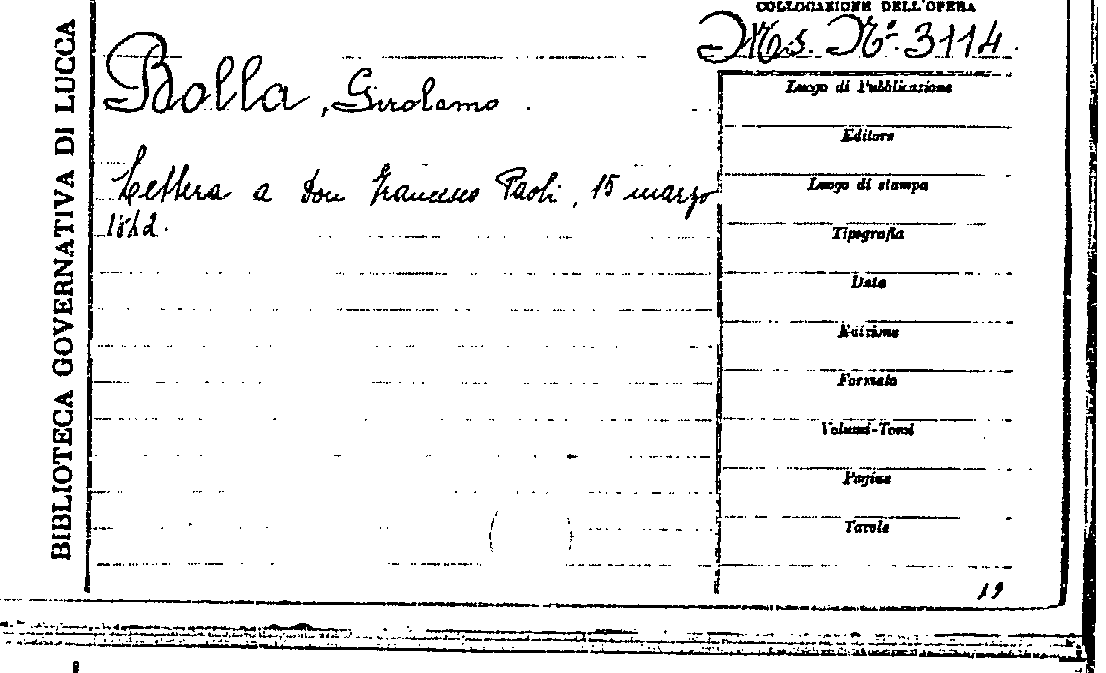 COLLOCAZIONE DELL'OPERA
Ms. Nº. 3114.
BIBLIOTECA GOVERNATIVA DI LUCCA
Bolla, Girolamo.
Lettera a Don Francesco Paoli, 15 marzo
Luogo di Pubblicazione
Editore
Luogo di stampa
Tipografia
Data
Edizione
Formato
Volumi-Tomi
Pagine
Tavole
19